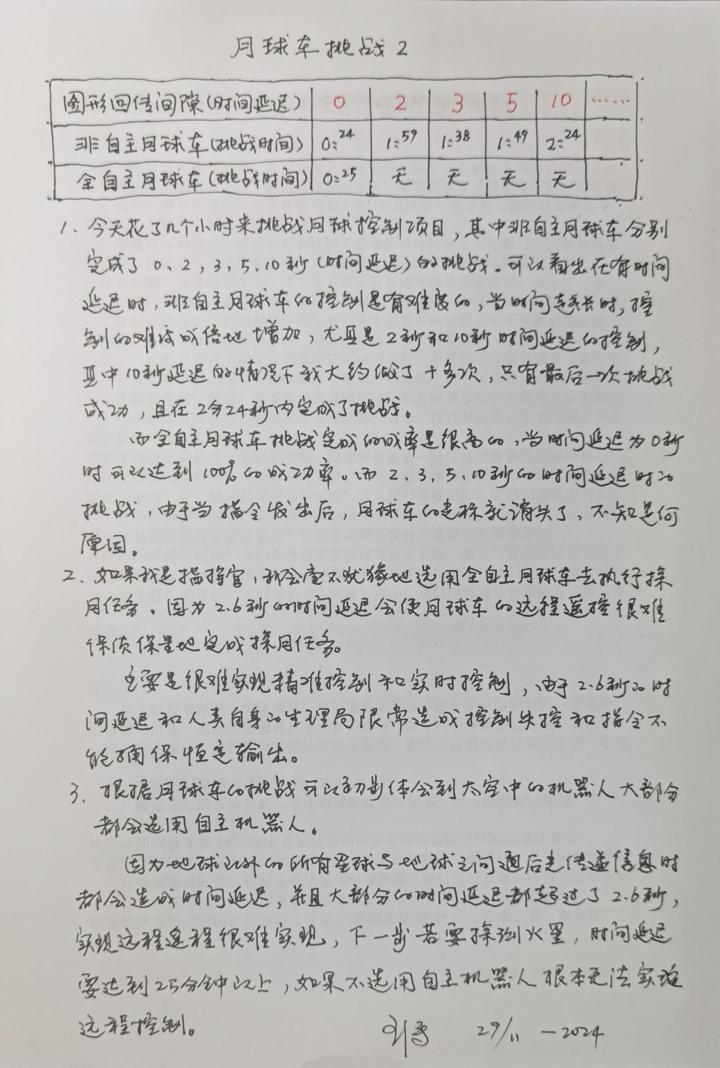 月球车挑战2
图形回传间隙(时间延迟) 0 2 3 5 10 ……
非自主月球车(挑战时间) 0:24 1:59 1:38 1:49 2:24
全自主月球车(挑战时间) 0:25 无 无 无 无
1、今天花了几个小时来挑战月球控制项目，其中非自主月球车分别
完成了0、2，3，5，10秒(时间延迟)的挑战。可以看出在有时间
延迟时，非自主月球车的控制是有难度的，当时间越长时，控
制的难度成倍地增加，尤其是2秒和10秒时间延迟的控制，
其中10秒延迟的情况下我大约做了十多次，只有最后一次挑战
成功，且在2分24秒内完成了挑战。
而全自主月球车挑战完成的成率是很高的，当时间延迟为0秒
时可以达到100%的成功率。而2、3、5、10秒的时间延迟时的
挑战，由于当指令发出后，月球车的坐标就消失了，不知是何
原因。
2、如果我是指挥官，我会毫不犹豫地选用全自主月球车去执行探
月任务。因为2.6秒的时间延迟会使月球车的远程遥控很难
保质保量地完成探月任务。
主要是很难实现精准控制和实时控制，由于2.6秒的时
间延迟和人类自身的生理局限常造成控制失控和指令不
能确保恒定输出。
3、根据月球车的挑战可以初步体会到太空中的机器人大部分
都会选用自主机器人。
因为地球以外的所有星球与地球之间通后先传递信息时
都会造成时间延迟，并且大部分的时间延迟都超过了2.6秒，
实现远程遥程很难实现，下一步若要探测火星，时间延迟
要达到25分钟以上，如果不选用自主机器人根本无法实施
远程控制。
29/11-2024